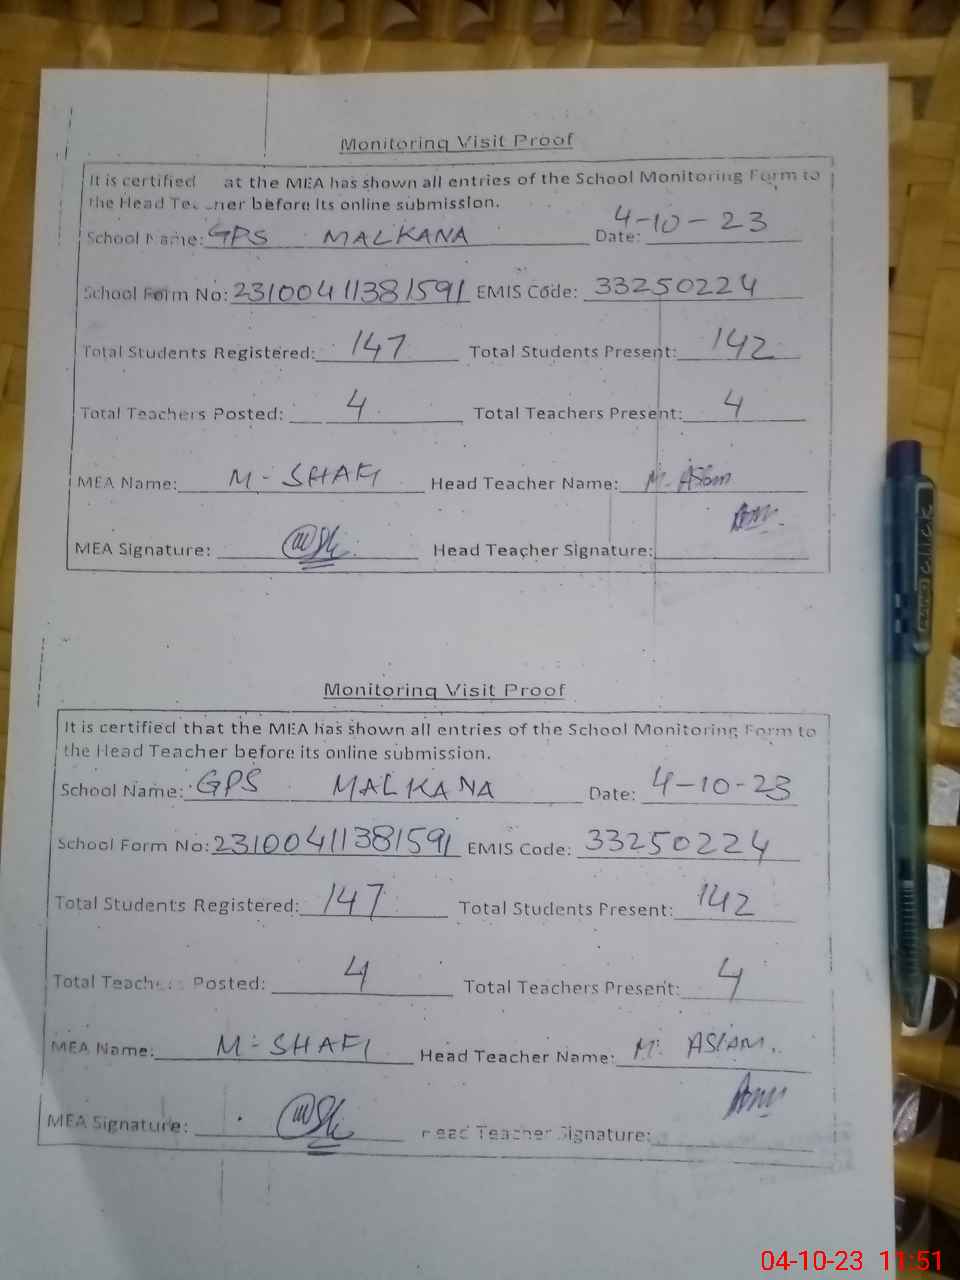 Monitoring Visit Proof
It is certified at the MEA has shown all entries of the School Monitoring Form to
the Head Teacher before its online submission.
School Name: GPS MALKANA Date: 4-10-23
School Form No: 23100411381591 EMIS Code: 33250224
Total Students Registered: 147 Total Students Present: 142
Total Teachers Posted: 4 Total Teachers Present: 4
MEA Name: M-SHAFI Head Teacher Name: M. Aslam
MEA Signature: Head Teacher Signature:
Monitoring Visit Proof
It is certified that the MEA has shown all entries of the School Monitoring Form to
the Head Teacher before its online submission.
School Name: GPS MALKANA Date: 4-10-23
School Form No: 23100411381591 EMIS Code: 33250224
Total Students Registered: 147 Total Students Present: 142
Total Teachers Posted: 4 Total Teachers Present: 4
MEA Name: M-SHAFI Head Teacher Name: M. ASLAM.
MEA Signature: Head Teacher Signature:
CLICK
04-10-23 11:51